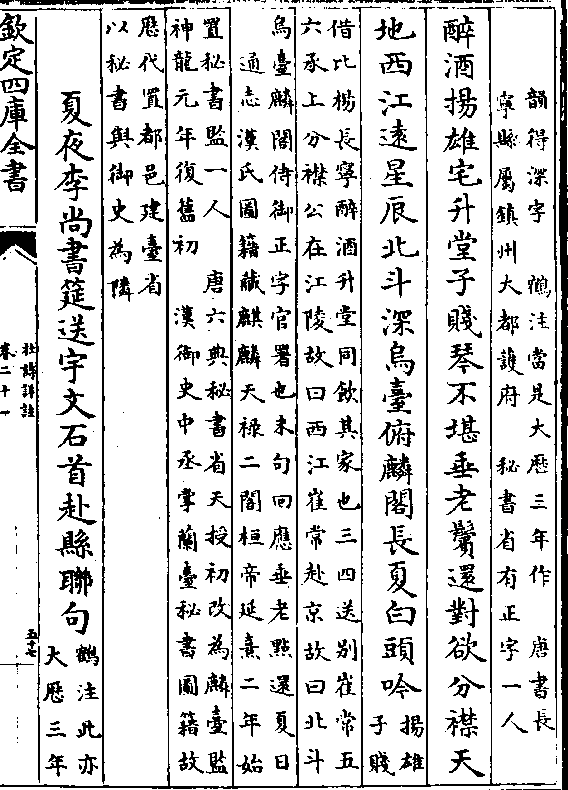 韻得深字　鶴注當是大厯三年作　唐書長
寧縣屬鎮州大都護府　秘書省有正字一人
醉酒揚雄宅升堂子賤琴不堪垂老鬢還對欲分襟天
地西江遠星辰北斗深烏臺俯麟閣長夏白頭吟
揚雄
子賤
借比楊長寧醉酒升堂同飲其家也三四送别崔常五
六承上分襟公在江陵故曰西江崔常赴京故曰北斗
烏臺麟閣侍御正字官署也末句回應垂老㸃還夏日
通志漢氏圖籍藏麒麟天禄二閣桓帝延熹二年始
置秘書監一人　唐六典秘書省天授初改為麟臺監
神龍元年復舊初　漢御史中丞掌蘭臺秘書圖籍故
厯代置都邑建臺省
以秘書與御史為隣
夏夜李尚書筵送宇文石首赴縣聯句
鶴注此亦
大厯三年
欽定四庫全書
杜詩詳註
卷二十一
五十七